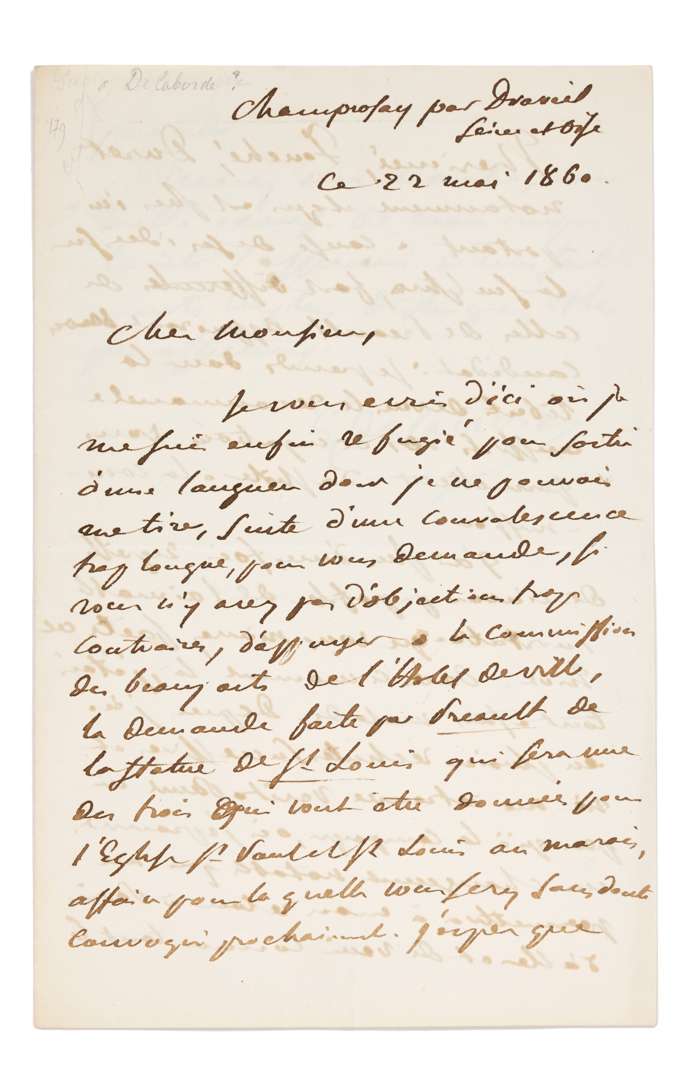 De laborde ?
Champrosay par Draveil
Seine et Oise
Ce 22 mai 1860.
Cher Monsieur,
Je vous écris d'ici où je
me suis enfin refugié pour sortir
d'une langueur dont je ne pouvais
me tirer, suite d'une convalescence
trop longue, pour vous demander, si
vous n'y avez pas d'objections trop
contraires, d'appuyer à la Commission
des beaux arts de l'Hotel de ville,
la demande faite par Préault de
la Statue de St Louis qui sera une
des trois qui vont etre données pour
l'Eglise St Paul et St Louis au marais,
affaire pour laquelle vous serez sans doute
convoqué prochainement. J'espère que